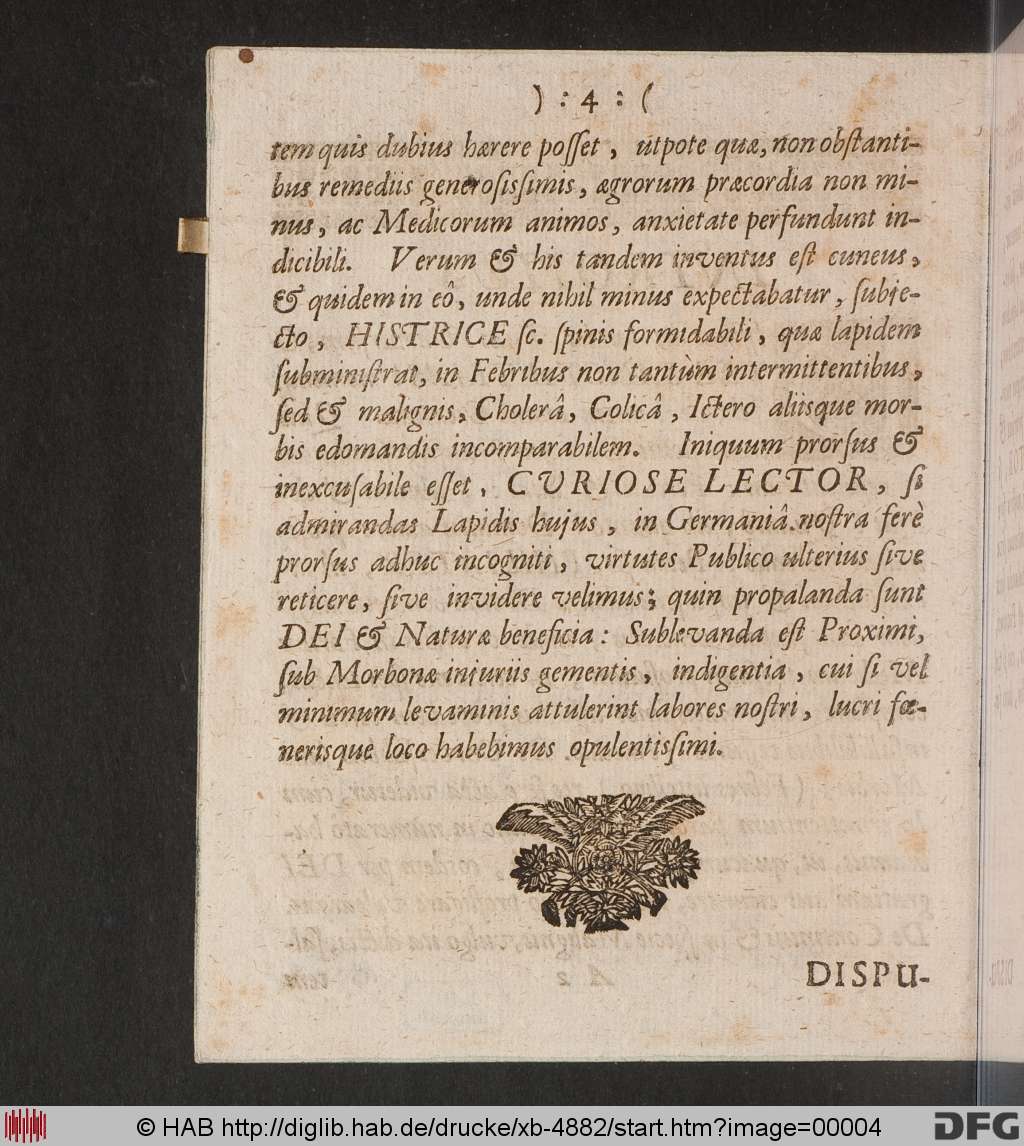 ) : 4 : (
tem quis dubius hærere posſet, utpote quæ, non obſtanti-
bus remediis generoſisſimis, ægrorum præcordia non mi-
nus, ac Medicorum animos, anxietate perfundunt in-
dicibili. Verum & his tandem inventus eſt cuneus,
& quidem in eô, unde nihil minus expectabatur, ſubje-
cto, HISTRICE ſc. ſpinis formidabili, quæ lapidem
ſubminiſtrat, in Febribus non tantùm intermittentibus,
ſed & malignis, Cholerâ, Colicâ, Ictero aliisque mor-
bis edomandis incomparabilem. Iniquum prorſus &
inexcuſabile eſſet, CVRIOSE LECTOR, ſi
admirandas Lapidis hujus, in Germaniâ noſtra ferè
prorſus adhuc incogniti, virtutes Publico ulterius ſive
reticere, ſive invidere velimus; quin propalanda ſunt
DEI & Naturæ beneficia: Sublevanda eſt Proximi,
ſub Morbonæ injuriis gementis, indigentia, cui ſi vel
minimum levaminis attulerint labores noſtri, lucri fœ-
nerisque loco habebimus opulentisſimi.
DISPU-
© HAB http://diglib.hab.de/drucke/xb-4882/start.htm?image=00004
DFG